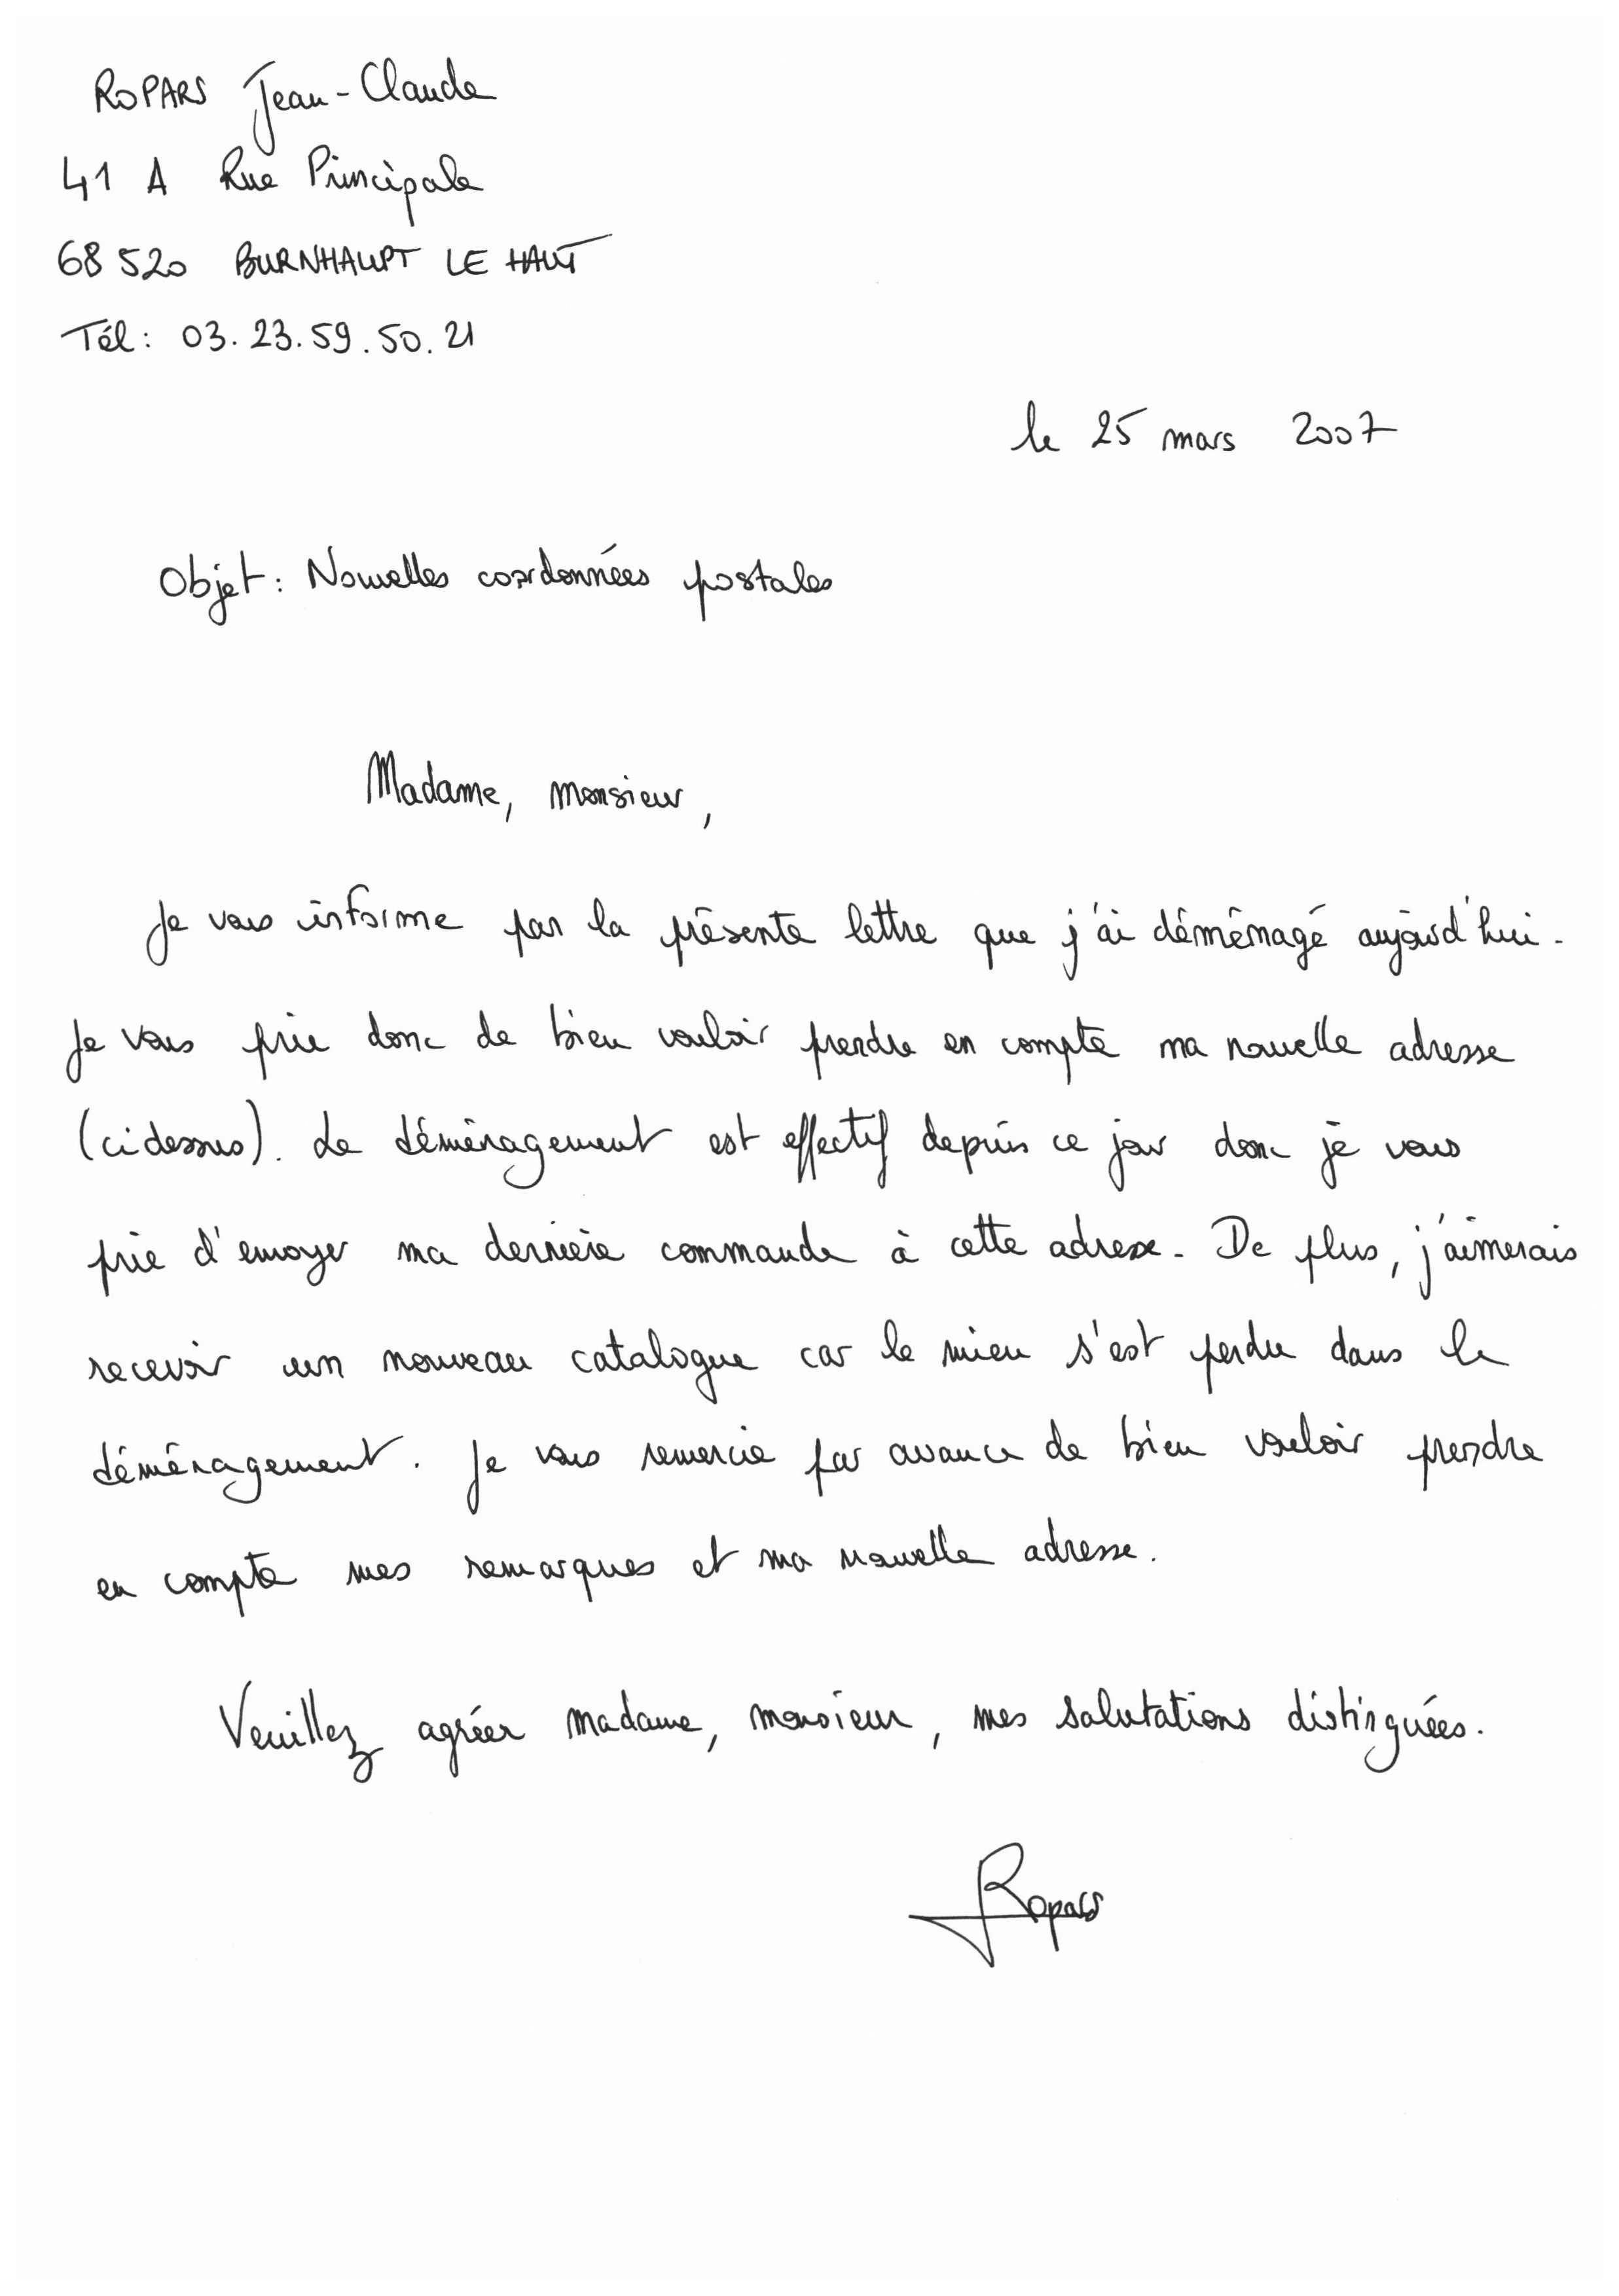 ROPARS Jean-Claude
41 A Rue Principale
68 520 BURNHAUPT LE HAUT
Tél : 03.23.59.50.21
le 25 mars 2007
Objet : Nouvelles coordonnées postales
Madame, monsieur,
Je vous informe par la présente lettre que j'ai déménagé aujourd'hui.
Je vous prie donc de bien vouloir prendre en compte ma nouvelle adresse
(cidessus). Le déménagement est effectif depuis ce jour donc je vous
prie d'envoyer ma dernière commande à cette adresse. De plus, j'aimerais
recevoir un nouveau catalogue car le mien s'est perdu dans le
déménagement. Je vous remercie par avance de bien vouloir prendre
en compte mes remarques et ma nouvelle adresse.
Veuillez agréer madame, monsieur, mes salutations distinguées.
Ropars